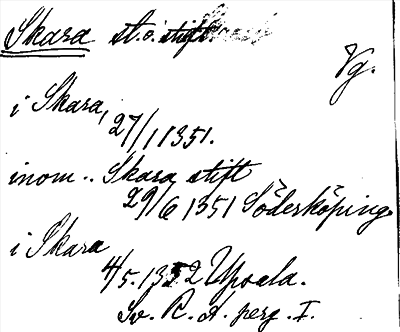 Skara st. o. stift
Vg.
i Skara,
27/1 1351.
inom .. Skara stift
29/6 1351 Söderköping.
i Skara
4/5. 1352 Upsala.
Sv. R. A. perg. I.